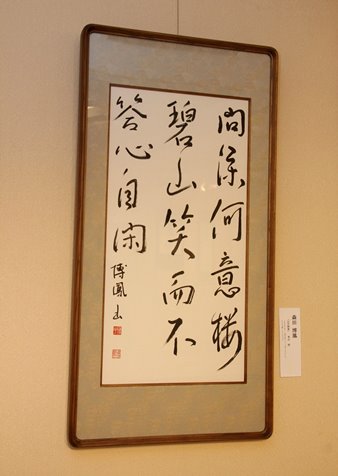 問余何意棲
碧山笑而不
答心自閑
博鳳書
博鳳